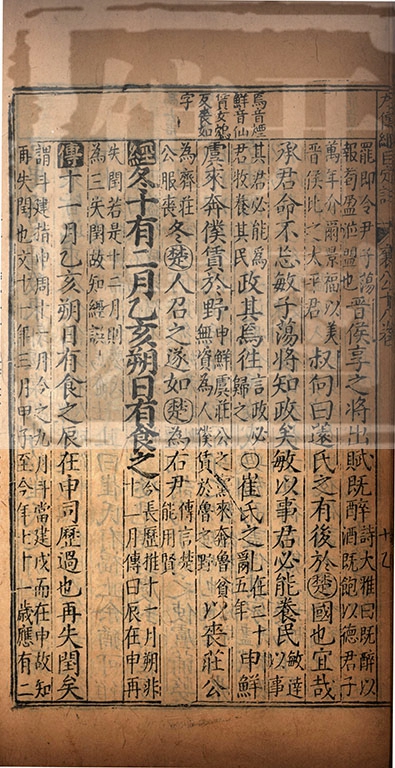 罷即令尹子蕩
報荀盈涖盟也
晉侯享之將出賦既醉
詩大雅曰既醉以
酒既飽以德君子
萬年介爾景福以美
晉侯比之太平君
叔向曰薳氏之有後於楚國也宜哉
承君命不忘敏子蕩將知政矣敏以事君必能養民
敏達
以事
焉音煙
鮮音仙
賃女鴆
反喪如
字
其君必能為
君牧養其民
政其焉往
言政必
歸之
〇崔氏之亂
在二十
五年
申鮮
虞來奔僕賃於野
申鮮虞莊公之黨來奔魯貧
無資為人僕賃於魯之野
以喪莊公
為齊莊
公服喪
冬楚人召之遂如楚為右尹
傳言楚
能用賢
經冬十有二月乙亥朔日有食之
今長歷推十一月朔非
十二月傳曰辰在申再
失閏若是十二月則
為三失閏故知經誤
傳十一月乙亥朔日有食之辰在申司歷過也再失閏矣
謂斗建指申周十一月今之九月斗當建戌而在申故知
再失閏也文十一年三月甲子至今年七十一歲應有二